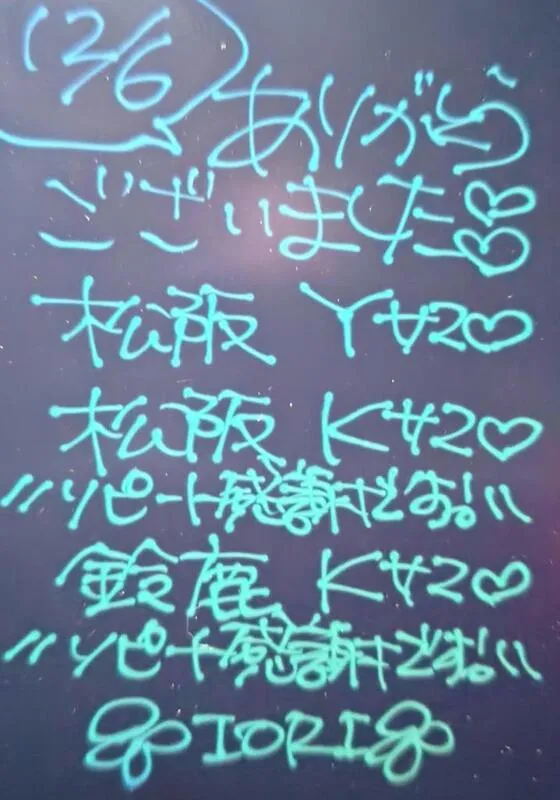 12/6
ありがとう〜
ございました♡♡
松阪 Yサン♡
松阪 Kサン♡
〃リピート感謝です!!〃
鈴鹿 Kサン♡
〃リピート感謝です!!〃
IORI